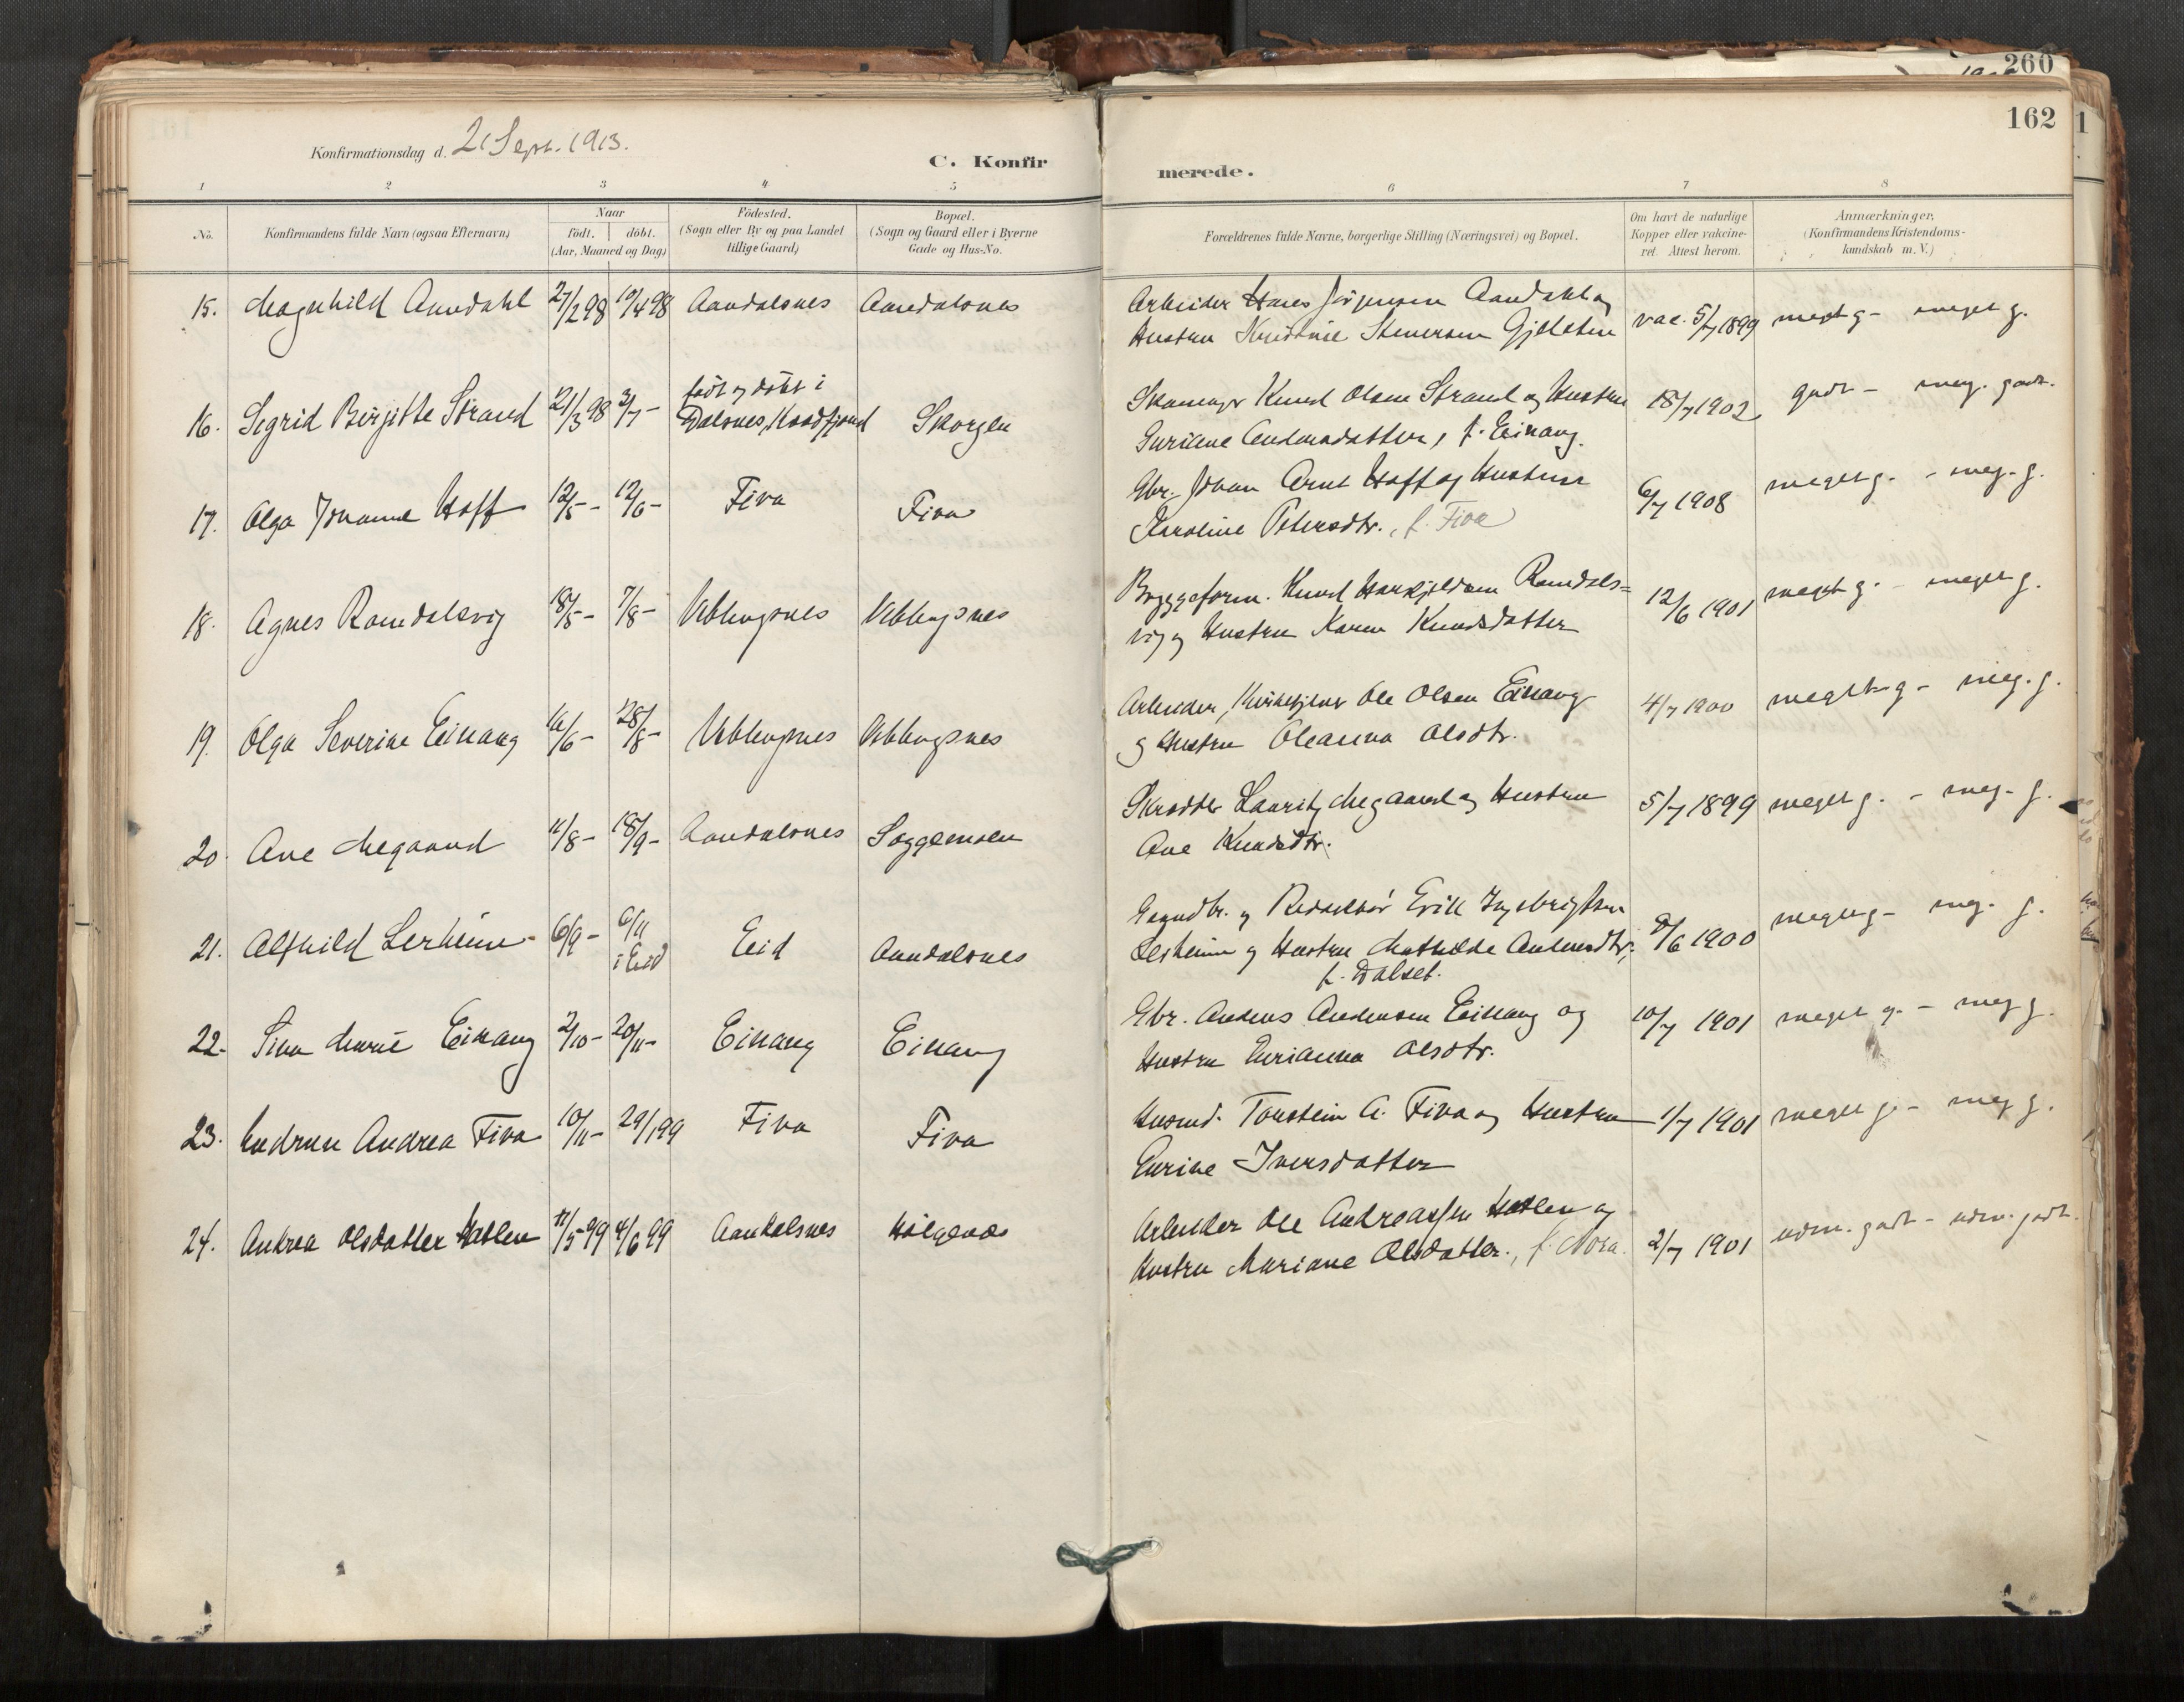 260
162
Konfirmationsdag d. 21 Sept. 1913.
C. Konfirmerede.
1 2 3 4 5 6 7 8
No.
Konfirmandens fulde Navn (ogsaa Efternavn)
Naar
født. døbt.
(Aar, Maaned og Dag)
Födested.
(Sogn eller By og paa Landet
tillige Gaard)
Bopæl.
(Sogn og Gaard eller i Byerne
Gade og Hus-No.
Forældrenes fulde Navne, borgerlige Stilling (Næringsvei) og Bopæl.
Om havt de naturlige
Kopper eller vakcine-
ret. Attest herom.
Anmærkninger.
(Konfirmandens Kristendoms-
kundskab m. V.)
15. Magnhild Aandahl 27/2 98 10/4 98 Aandalsnes Aandalsnes
Arbeider Hans Jørgensen Aandahl og
Hustru Kristine Steversen Gjelsten
vac. 5/7 1899 meget g - meget g.
16. Sigrid Birgitte Strand 21/3 98 3/7 -
født og døbt i
Dalsnes, Rødfjord Skorgen
Skomager Knud Olsen Strand og Hustru
Guriane Andersdatter, f. Einang.
18/7 1902 godt - meg. godt.
17. Olga Johanne Hoff 12/5 - 12/6 - Fiva Fiva
Gbr. Johan Arnt Hoff og Hustru
Karoline Petersdtr., f. Fiva
6/7 1908 meget g. - meg. g.
18. Agnes Romdalsvig 18/5 - 7/8 - Veblungsnes Veblungsnes
Byggeform. Knud Harkjeldsen Romdals=
vig og Hustru Karen Knudsdatter
12/6 1901 meget g. - meget g.
19. Olga Severine Einang 16/6 - 28/8 - Veblungsnes Veblungsnes
Arbeider, Kirketjener Ole Olsen Einang
og Hustru Oleanna Olsdtr.
4/7 1900 meget g - meg. g.
20. Ane Megaard 11/8 - 18/9 - Aandalsnes Soggemoen
Skrædder Lauritz Megaard og Hustru
Ane Knudsdtr.
5/7 1899 meget g. - meg. g.
21. Alfhild Lerheim 6/9 - 6/11
i Eid Eid Aandalsnes
Gaardbr. og Redaktør Erik Ingebrigtsen
Lerheim og Hustru Mathilde Andersdtr.,
f. Dalset.
8/6 1900 meget g - meg. g.
22. Sina Marie Einang 2/10 - 20/11 - Einang Einang
Gbr. Anders Andersen Einang og
Hustru Gurianna Olsdtr.
10/7 1901 meget g. - meg g.
23. Gudrun Andrea Fiva 10/11 - 29/1 99 Fiva Fiva
Husmd. Torstein A. Fiva og Hustru
Gurine Iversdatter
1/7 1901 meget g. - meg g.
24. Andrea Olsdatter Hatlen 11/5 99 4/6 99 Aandalsnes Holgenæs
Arbeider Ole Andreassen Hatlen og
Hustru Mariane Olsdatter., f. Nora.
2/7 1901 udm. godt - udm. godt.